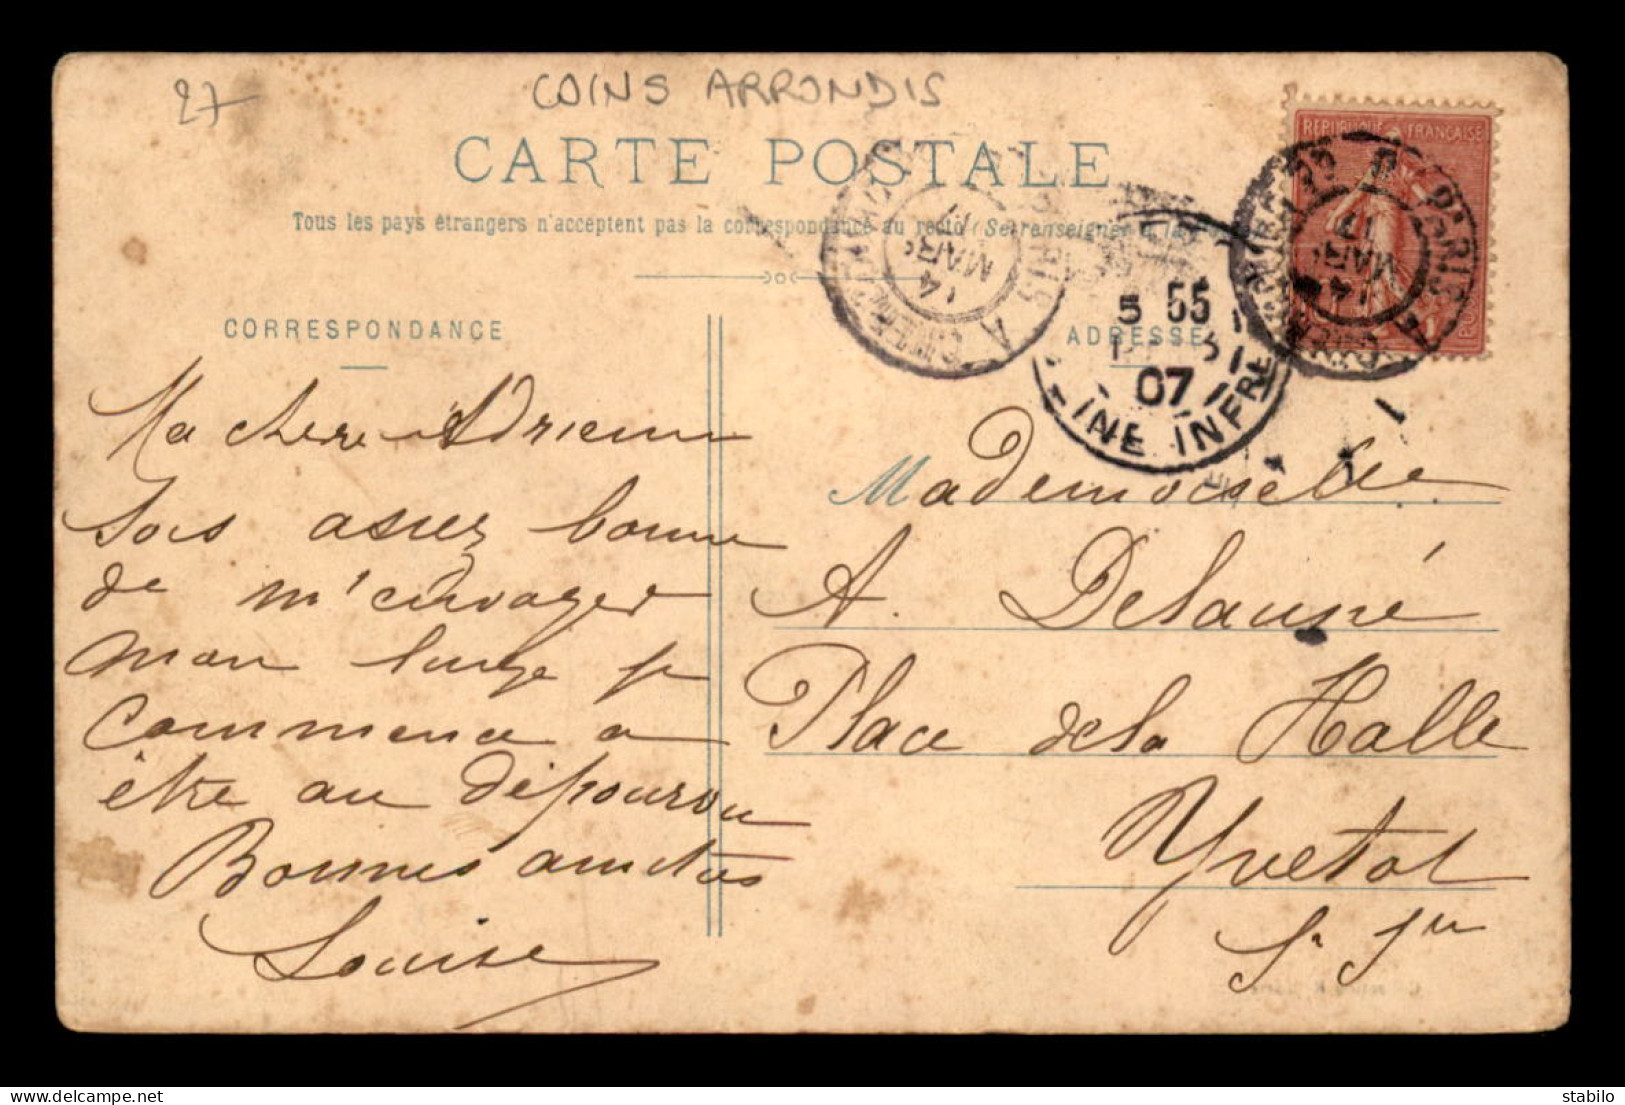 27
COINS ARRONDIS
CARTE POSTALE
Tous les pays étrangers n'acceptent pas la correspondance au recto (Se renseigner à la
CORRESPONDANCE
ADRESSE
REPUBLIQUE FRANÇAISE
PARIS A
14
MARS
PARIS
14
MARS
5 55
07
INE INFRE
Ma chere Adrienne
Sois assez bonne
de m'envoyer
mon linge je
commence a
être au dépourvu
Bonnes amitiés
Louise
Mademoiselle
A. Delauné
Place de la Halle
Yvetot
S. Inre
delcampe.net
stabilo